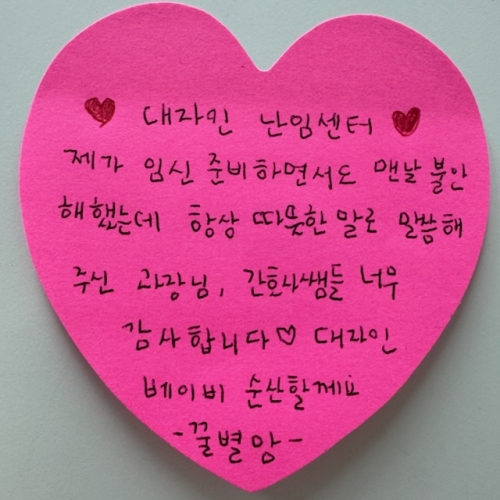 ♥ 대자인 난임센터 ♥
제가 임신 준비하면서도 맨날 불안
해했는데 항상 따뜻한 말로 말씀해
주신 과장님, 간호사쌤들 너무
감사합니다♡ 대자인
베이비 순산할께요
-꿀별맘-